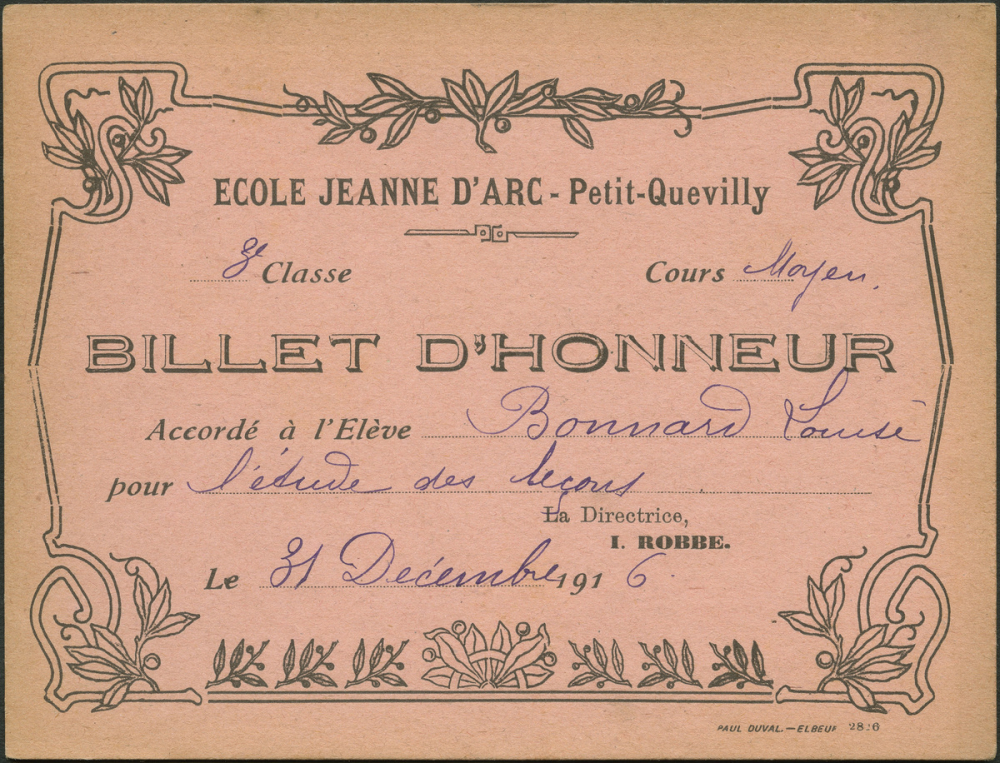 ECOLE JEANNE D'ARC - Petit-Quevilly
3e Classe Cours Moyen.
BILLET D'HONNEUR
Accordé à l'Elève Bonnard Louise
pour l'étude des leçons
La Directrice,
I. ROBBE.
Le 31 Décembre 1916
PAUL DUVAL.—ELBEUF